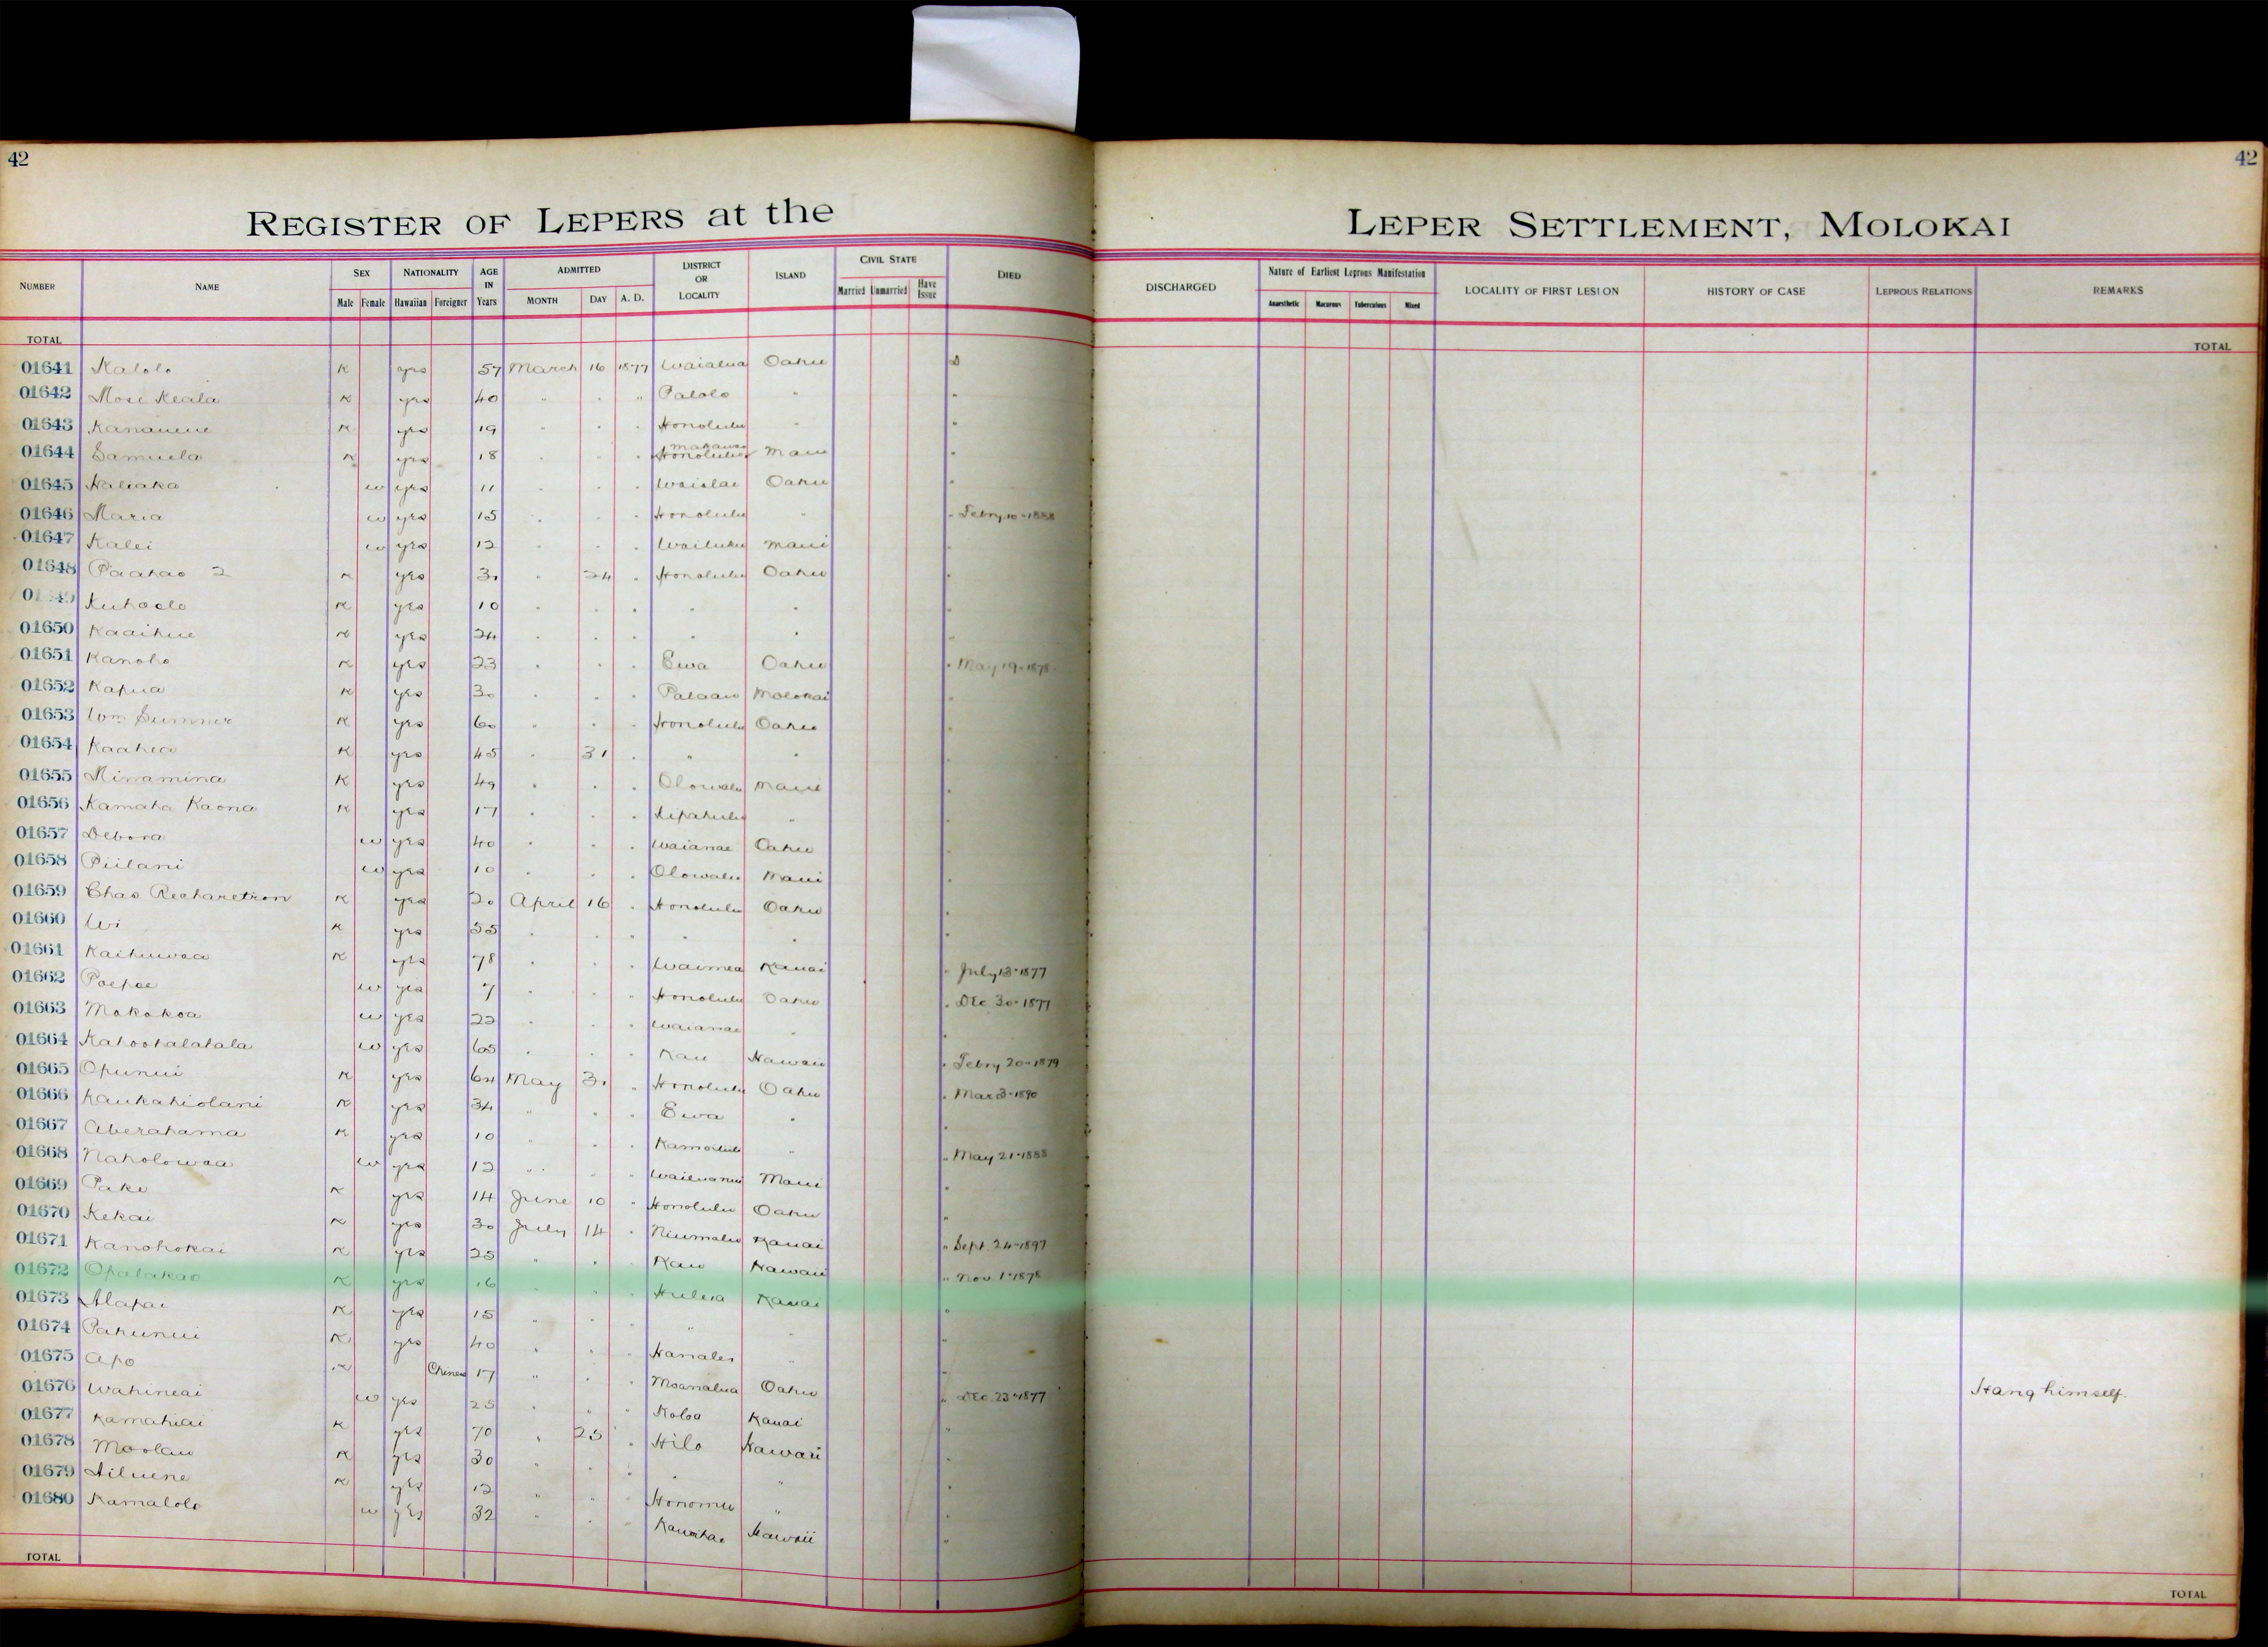 42
42
REGISTER OF LEPERS at the LEPER SETTLEMENT, MOLOKAI
NUMBER NAME SEX NATIONALITY AGE IN Years ADMITTED DISTRICT OR LOCALITY ISLAND CIVIL STATE DIED DISCHARGED Nature of Earliest Leprous Manifestation LOCALITY OF FIRST LESION HISTORY OF CASE LEPROUS RELATIONS REMARKS
Male Female Hawaiian Foreigner MONTH DAY A. D. Married Unmarried Have Issue Anaesthetic Macurous Tuberculous Mixed
TOTAL TOTAL
01641 Kalolo K yes 57 March 16 1877 Waialua Oahu D
01642 Mose Keala K yes 40 " " " Palolo " "
01643 Kananene K yes 19 " " " Honolulu " "
01644 Samuela K yes 18 " " " Makawao Honolulu Maui "
01645 Naliaka w yes 11 " " " Waialae Oahu "
01646 Maria w yes 15 " " " Honolulu " " Febry 10-1888
01647 Kalei w yes 12 " " " Wailuku Maui "
01648 Paahao 2 K yes 30 " 24 " Honolulu Oahu "
Kuhaelo K yes 10 " " " " " "
01650 Kaaihue K yes 24 " " " " " "
01651 Kanoho K yes 23 " " " Ewa Oahu " May 19-1878
01652 Kapua K yes 30 " " " Palaau Molokai "
01653 Wm Sumner K yes 60 " " " Honolulu Oahu "
01654 Kaahea K yes 45 " 31 " " " "
01655 Minamina K yes 49 " " " Olowalu Maui "
01656 Kamaha Kaona K yes 17 " " " Kipahulu " "
01657 Debora w yes 40 " " " Waianae Oahu "
01658 Piilani w yes 10 " " " Olowalu Maui "
01659 Chas Richardson K yes 20 April 16 " Honolulu Oahu "
01660 Wi K yes 35 " " " " " "
01661 Kaihuwaa K yes 78 " " " Waimea Kauai " July 13-1877
01662 Poepoe w yes 7 " " " Honolulu Oahu " Dec 30-1877
01663 Mokokoa w yes 22 " " " Waianae " "
01664 Kahoohalahala w yes 65 " " " Kau Hawaii " Febry 20-1879
01665 Opunui K yes 64 May 31 " Honolulu Oahu " Mar 3-1890
01666 Kaukahiolani K yes 34 " " " Ewa " "
01667 Aberahama K yes 10 " " " Kamoiliili " " May 21-1888
01668 Naholowaa w yes 12 " " " Wailuanui Maui "
01669 Pake K yes 14 June 10 " Honolulu Oahu "
01670 Kekai K yes 30 July 14 " Niumalu Kauai " Sept 24-1897
01671 Kanohokai K yes 25 " " " Kau Hawaii " Nov 1-1878
01672 Opalakao K yes 16 " " " Huleia Kauai "
01673 Alapai K yes 15 " " " " " "
01674 Pahunui K yes 40 " " " Hanalei " "
01675 Apo K Chinese 17 " " " Moanalua Oahu " Dec 23-1877 Hang himself.
01676 Wahineai w yes 25 " " " Koloa Kauai "
01677 Kamahiai K yes 70 " 25 " Hilo Hawaii "
01678 Moolau K yes 30 " " " " " "
01679 Hiluene K yes 12 " " " Honomu " "
01680 Kamalolo w yes 32 " " " Kawaihae Hawaii "
TOTAL TOTAL